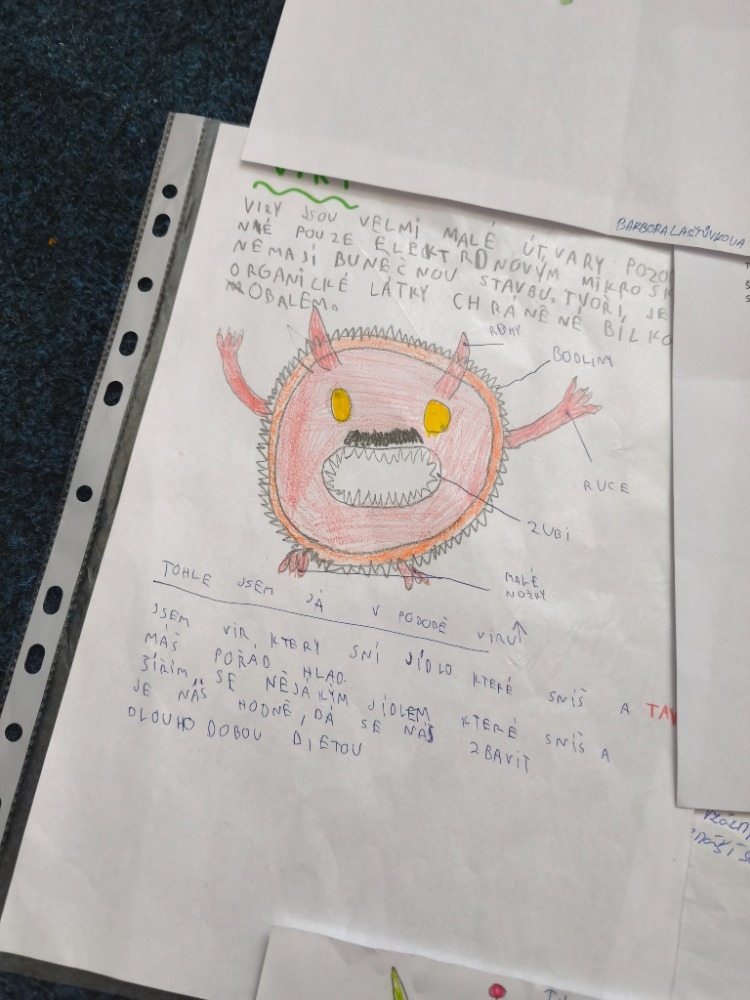 VIRY
BARBORA LAŠTŮVKOVA
VIRY JSOU VELMI MALÉ ÚTVARY
NÉ POUZE ELEKTRONOVÝM MIKROSK
NEMAJÍ BUNEČNOU STAVBU. TVOŘÍ JE
ORGANICKÉ LÁTKY CHRÁNĚNÉ BÍLKO
OBALEM.
ROHY
BODLINY
RUCE
ZUBI
MALÉ
NOŽKY
TOHLE JSEM JÁ V PODOBĚ VIRU
JSEM VIR KTERÝ SNÍ JÍDLO KTERÉ SNÍŠ A
MÁŠ POŘÁD HLAD.
ŠÍŘÍM SE NĚJAKÝM JÍDLEM KTERÉ SNÍŠ A
JE NÁS HODNĚ, DÁ SE NÁS ZBAVIT
DLOUHO DOBOU DIETOU